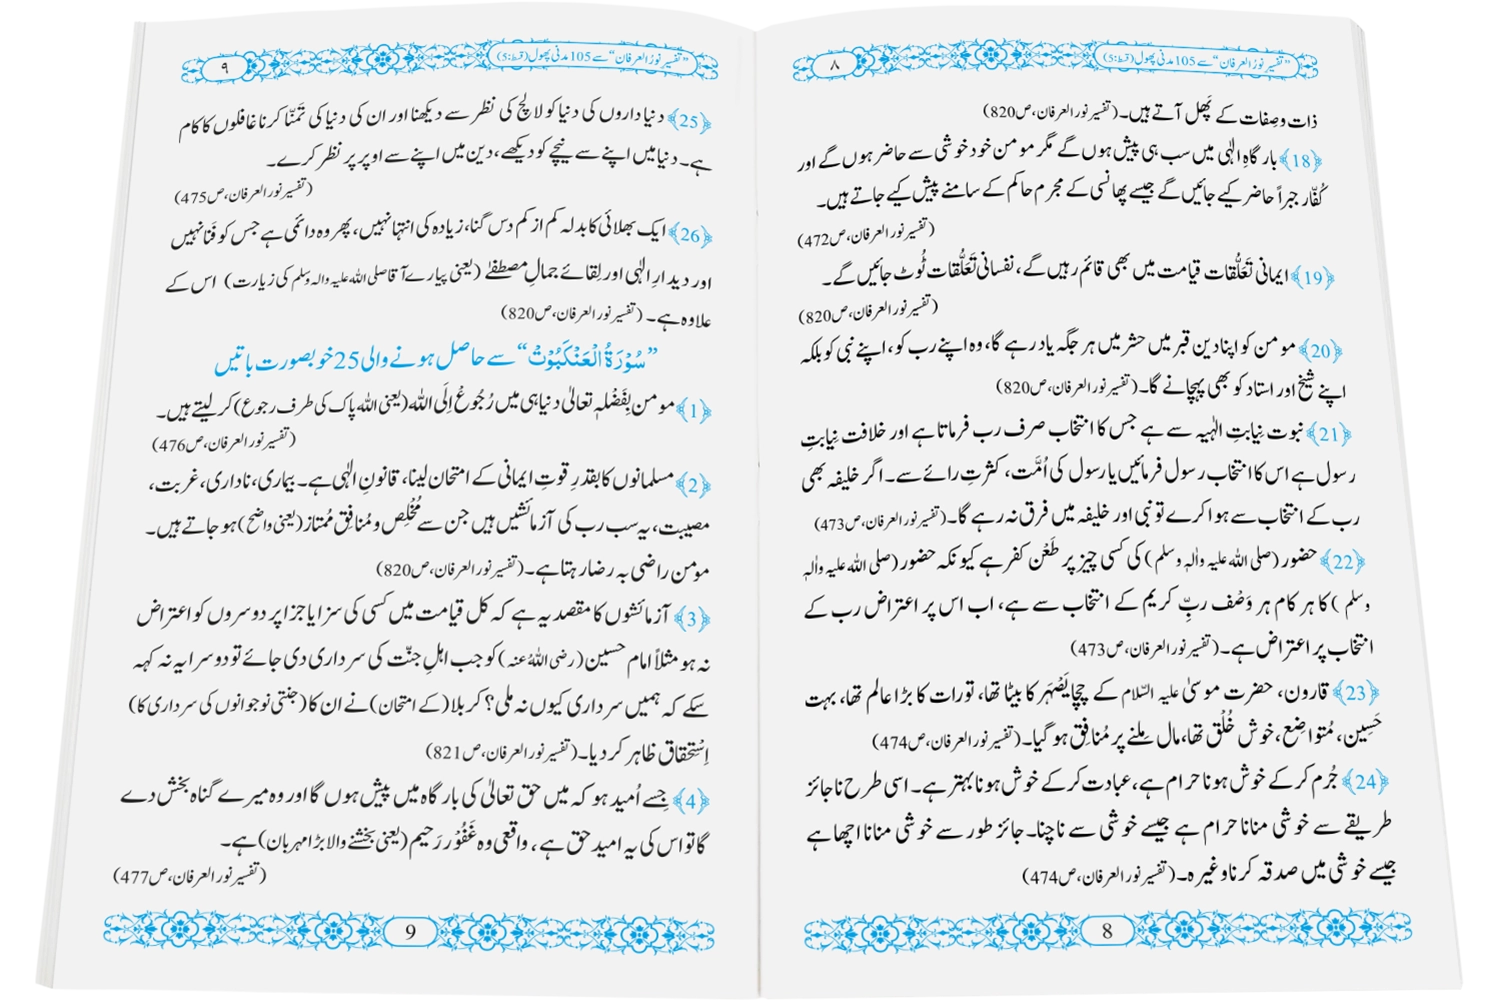 ”تفسیر نورُ العرفان“ سے 105 مدنی پھول (قسط:5)
۸
ذات وصِفات کے پَھل آتے ہیں۔ (تفسیر نور العرفان،ص820)
﴿18﴾ بارگاہِ الٰہی میں سب ہی پیش ہوں گے مگر مومن خود خوشی سے حاضر ہوں گے اور
کُفّار جبراً حاضر کیے جائیں گے جیسے پھانسی کے مجرم حاکم کے سامنے پیش کیے جاتے ہیں۔
(تفسیر نور العرفان،ص472)
﴿19﴾ ایمانی تَعَلُّقات قیامت میں بھی قائم رہیں گے، نفسانی تَعَلُّقات ٹُوٹ جائیں گے۔
(تفسیر نور العرفان،ص820)
﴿20﴾ مومن کو اپنا دین قبر میں حشر میں ہر جگہ یاد رہے گا، وہ اپنے رب کو، اپنے نبی کو بلکہ
اپنے شیخ اور استاد کو بھی پہچانے گا۔ (تفسیر نور العرفان،ص820)
﴿21﴾ نبوت نِیابتِ الٰہیہ سے ہے جس کا انتخاب صرف رب فرماتا ہے اور خلافت نِیابتِ
رسول ہے اس کا انتخاب رسول فرمائیں یا رسول کی اُمَّت، کثرتِ رائے سے۔ اگر خلیفہ بھی
رب کے انتخاب سے ہوا کرے تو نبی اور خلیفہ میں فرق نہ رہے گا۔ (تفسیر نور العرفان،ص473)
﴿22﴾ حضور (صلی اللہ علیہ واٰلہٖ وسلم) کی کسی چیز پر طَعْن کفر ہے کیونکہ حضور (صلی اللہ علیہ واٰلہٖ
وسلم) کا ہر کام ہر وَصْف ربِّ کریم کے انتخاب سے ہے، اب اس پر اعتراض رب کے
انتخاب پر اعتراض ہے۔ (تفسیر نور العرفان،ص473)
﴿23﴾ قارون، حضرت موسیٰ علیہ السّلام کے چچا یَصْہَر کا بیٹا تھا، تورات کا بڑا عالم تھا، بہت
حَسِین، مُتواضِع، خوش خُلْق تھا، مال ملنے پر مُنافِق ہو گیا۔ (تفسیر نور العرفان،ص474)
﴿24﴾ جُرم کر کے خوش ہونا حرام ہے، عبادت کر کے خوش ہونا بہتر ہے۔ اسی طرح ناجائز
طریقے سے خوشی منانا حرام ہے جیسے خوشی سے ناچنا۔ جائز طور سے خوشی منانا اچھا ہے
جیسے خوشی میں صدقہ کرنا وغیرہ۔ (تفسیر نور العرفان،ص474)
8
”تفسیر نورُ العرفان“ سے 105 مدنی پھول (قسط:5)
۹
﴿25﴾ دنیا داروں کی دنیا کو لالچ کی نظر سے دیکھنا اور ان کی دنیا کی تَمَنّا کرنا غافلوں کا کام
ہے۔ دنیا میں اپنے سے نیچے کو دیکھے، دین میں اپنے سے اوپر پر نظر کرے۔
(تفسیر نور العرفان،ص475)
﴿26﴾ ایک بھلائی کا بدلہ کم از کم دس گنا، زیادہ کی انتہا نہیں، پھر وہ دائمی ہے جس کو فَنا نہیں
اور دیدارِ الٰہی اور لِقائے جمالِ مصطفےٰ (یعنی پیارے آقا صلی اللہ علیہ والہ وسلم کی زیارت) اس کے
علاوہ ہے۔ (تفسیر نور العرفان،ص820)
”سُوْرَۃُ الْعَنْکَبُوْت“ سے حاصل ہونے والی 25 خوبصورت باتیں
﴿1﴾ مومن بِفَضْلِہٖ تعالیٰ دنیا ہی میں رُجُوع اِلَی اللہ (یعنی اللہ پاک کی طرف رجوع) کر لیتے ہیں۔
(تفسیر نور العرفان،ص476)
﴿2﴾ مسلمانوں کا بقدرِ قوتِ ایمانی کے امتحان لینا، قانونِ الٰہی ہے۔ بیماری، ناداری، غربت،
مصیبت، یہ سب رب کی آزمائشیں ہیں جن سے مُخْلِص و مُنافِق مُمتاز (یعنی واضح) ہو جاتے ہیں۔
مومن راضی بہ رضا رہتا ہے۔ (تفسیر نور العرفان،ص820)
﴿3﴾ آزمائشوں کا مقصد یہ ہے کہ کل قیامت میں کسی کی سزا یا جزا پر دوسروں کو اعتراض
نہ ہو مثلاً امام حسین (رضی اللہُ عنہ) کو جب اہلِ جنّت کی سرداری دی جائے تو دوسرا یہ نہ کہہ
سکے کہ ہمیں سرداری کیوں نہ ملی؟ کربلا (کے امتحان) نے ان کا (جنتی نوجوانوں کی سرداری کا)
اِسْتِحْقاق ظاہر کر دیا۔ (تفسیر نور العرفان،ص821)
﴿4﴾ جِسے اُمید ہو کہ میں حق تعالیٰ کی بارگاہ میں پیش ہوں گا اور وہ میرے گناہ بخش دے
گا تو اس کی یہ امید حق ہے، واقعی وہ غَفُوْر رَحیم (یعنی بخشنے والا بڑا مہربان) ہے۔
(تفسیر نور العرفان،ص477)
9